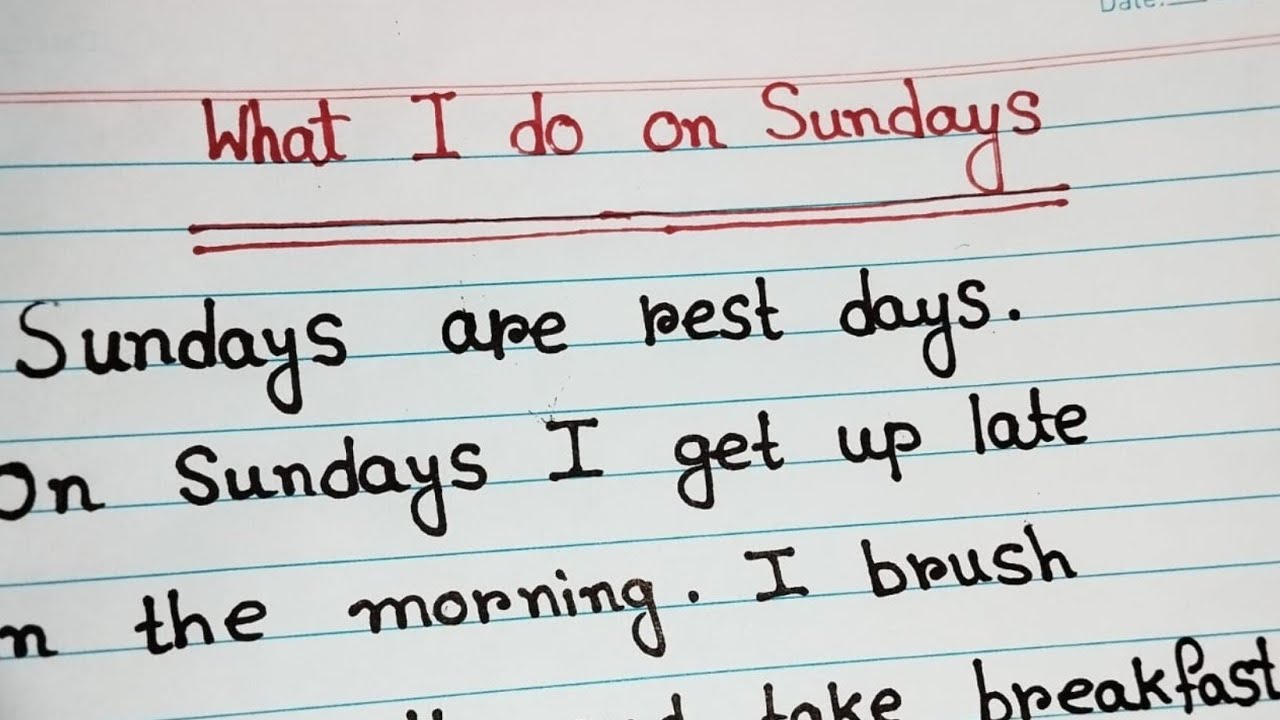 Date:
What I do on Sundays
Sundays are rest days.
On Sundays I get up late
n the morning. I brush
take breakfast